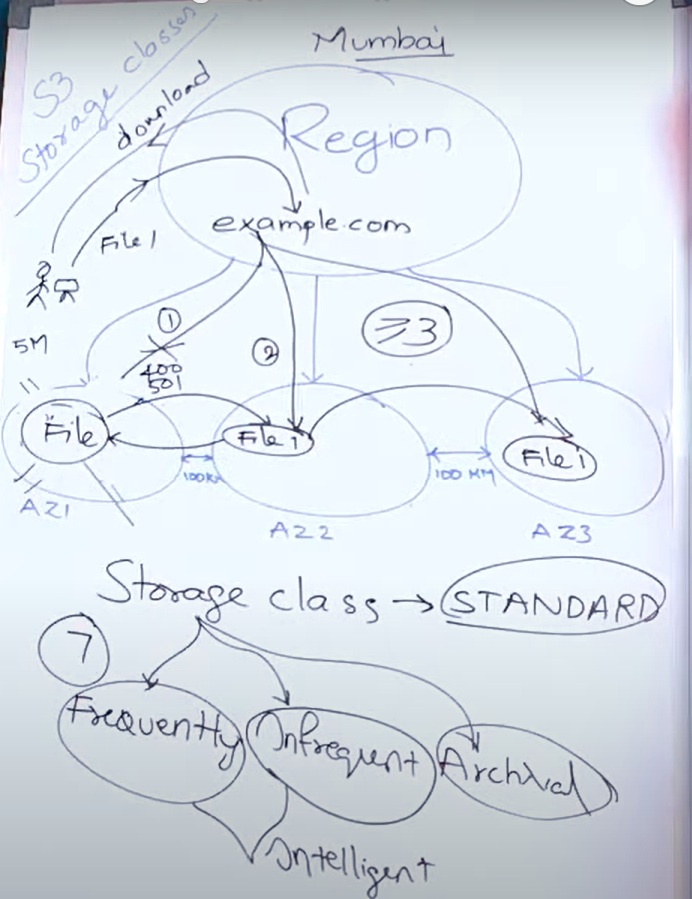 Mumbai
S3
Storage classes
download
Region
example.com
File 1
①
②
≥3
5M
400
501
File
File 1
File 1
100KM
100 KM
AZ1
AZ2
AZ3
Storage class → STANDARD
7
Frequently
Infrequent
Archival
Intelligent